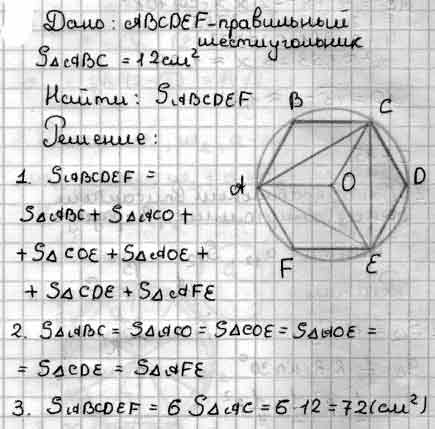 Дано: ABCDEF-правильный
шестиугольник
S△ABC = 12см²
Найти: SABCDEF
Решение:
B
C
A
O
D
F
E
1. SABCDEF =
S△ABC + S△ACO +
+ S△COE + S△AOE +
+ S△CDE + S△AFE
2. S△ABC = S△ACO = S△COE = S△AOE =
= S△CDE = S△AFE
3. SABCDEF = 6 S△AC = 6·12 = 72(см²)